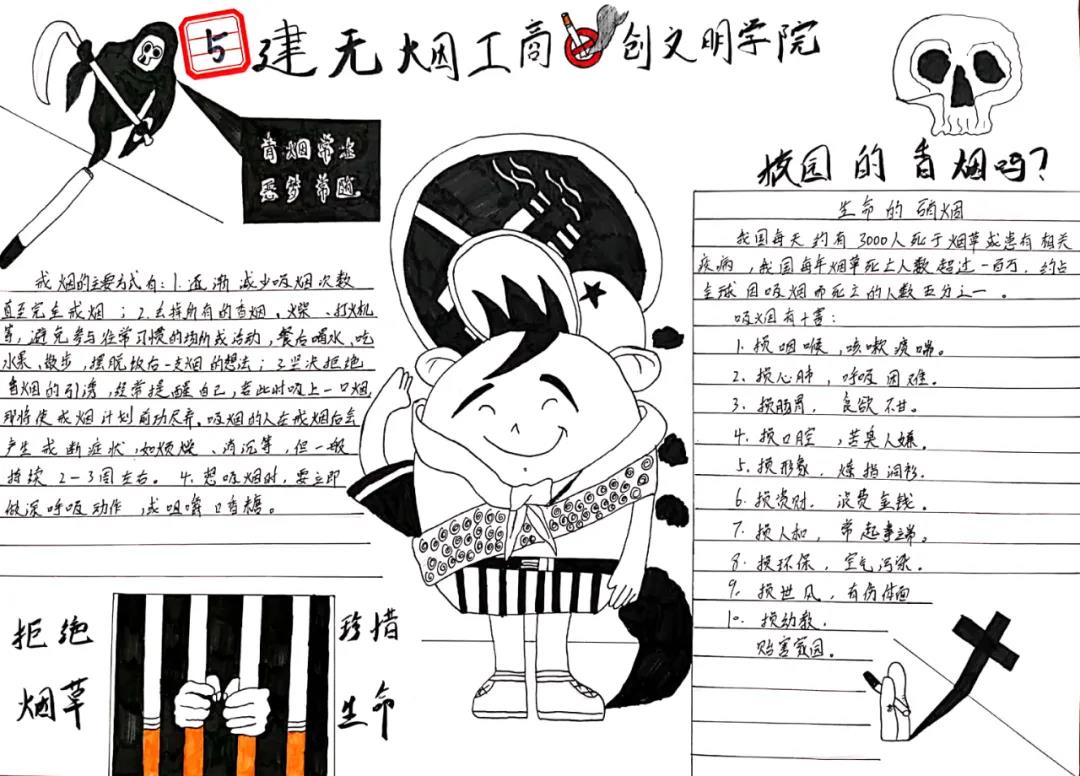 5 建无烟工商 创文明学院
肯烟常业
恶梦常随
戒烟的主要方式有：1.逐渐减少吸烟次数
直至完全戒烟；2.去掉所有的香烟、火柴、打火机
等，避免参与往常习惯的场所或活动，餐后喝水、吃
水果、散步，摆脱饭后一支烟的想法；3.坚决拒绝
香烟的引诱，经常提醒自己，若此时吸上一口烟，
即将使戒烟计划前功尽弃。吸烟的人在戒烟后会
产生戒断症状，如烦燥、消沉等，但一般
持续2-3周左右。4.想吸烟时，要立即
做深呼吸动作，或咀嚼口香糖。
拒绝
烟草
珍惜
生命
校园的香烟吗？
生命的硝烟
我国每天约有3000人死于烟草或患有相关
疾病，我国每年烟草死亡人数超过一百万，约占
全球因吸烟而死亡的人数五分之一。
吸烟有十害：
1.损咽喉，咳嗽痰喘。
2.损心肺，呼吸困难。
3.损肠胃，食欲不甘。
4.损口腔，苦臭人嫌。
5.损形象，燎指洞衫。
6.损资财，浪费金钱。
7.损人和，常起事端。
8.损环保，空气污染。
9.损世风，有伤体面
10.损幼教，
贻害家园。